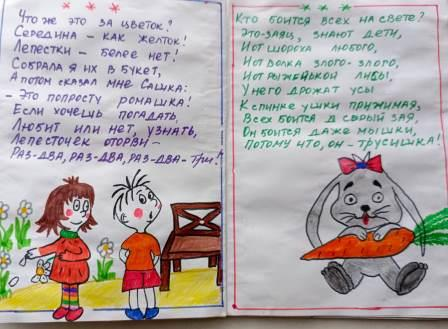 * * *
Что же это за цветок?
Середина - как желток!
Лепестки - более нет!
Собрала я их в букет,
А потом сказал мне Сашка:
- Это попросту ромашка!
Если хочешь погадать,
Любит или нет, узнать,
Лепесточек оторви -
Раз-два, раз-два, раз-два-три!
* * *
Кто боится всех на свете?
Это-заяц, знают дети,
И от шороха любого,
И от волка злого-злого,
И от рыжейькой лисы,
У него дрожат усы
К спинке ушки прижимая,
Всех боится
серый зая,
Он боится даже мышки,
Потому что, он - трусишка!